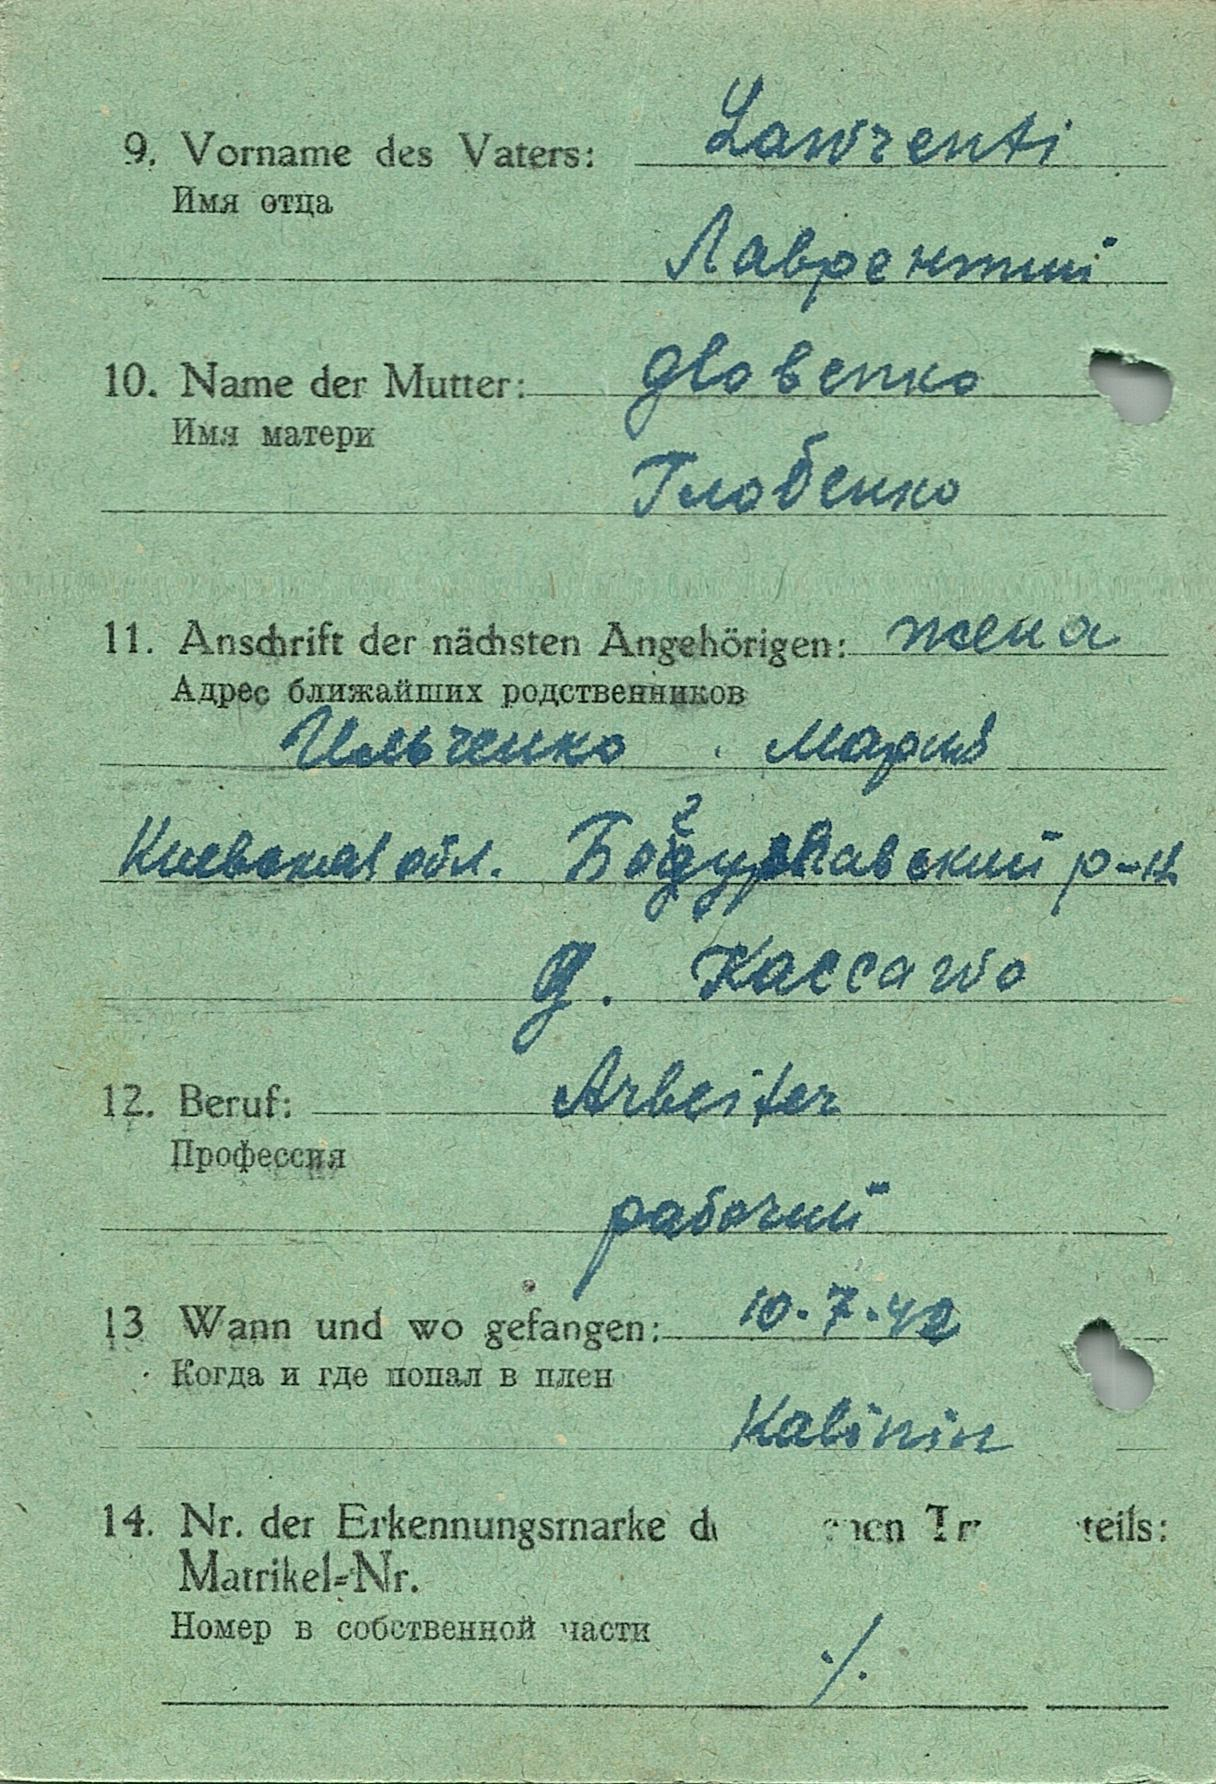 9. Vorname des Vaters: Lawrenti
Имя отца
Лаврентий
10. Name der Mutter: Globenko
Имя матери
Глобенко
11. Anschrift der nächsten Angehörigen: жена
Адрес ближайших родственников
Ильченко Мария
Киевская обл. р-н
д.
12. Beruf: Arbeiter
Профессия
рабочий
13 Wann und wo gefangen: 10.7.42
Когда и где попал в плен
Kalinin
14. Nr. der Erkennungsmarke
Matrikel-Nr.
Номер в собственной части
·/.